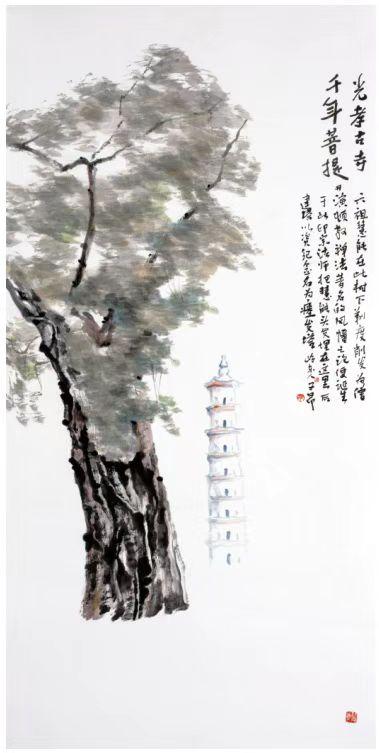 光孝古寺
千年菩提
六祖慧能在此树下剃度削发为僧
并演顿教禅法著名的风幡之论便诞生
于此印宗法师把慧能头发埋在这里后
建塔以资纪念名为瘗发塔